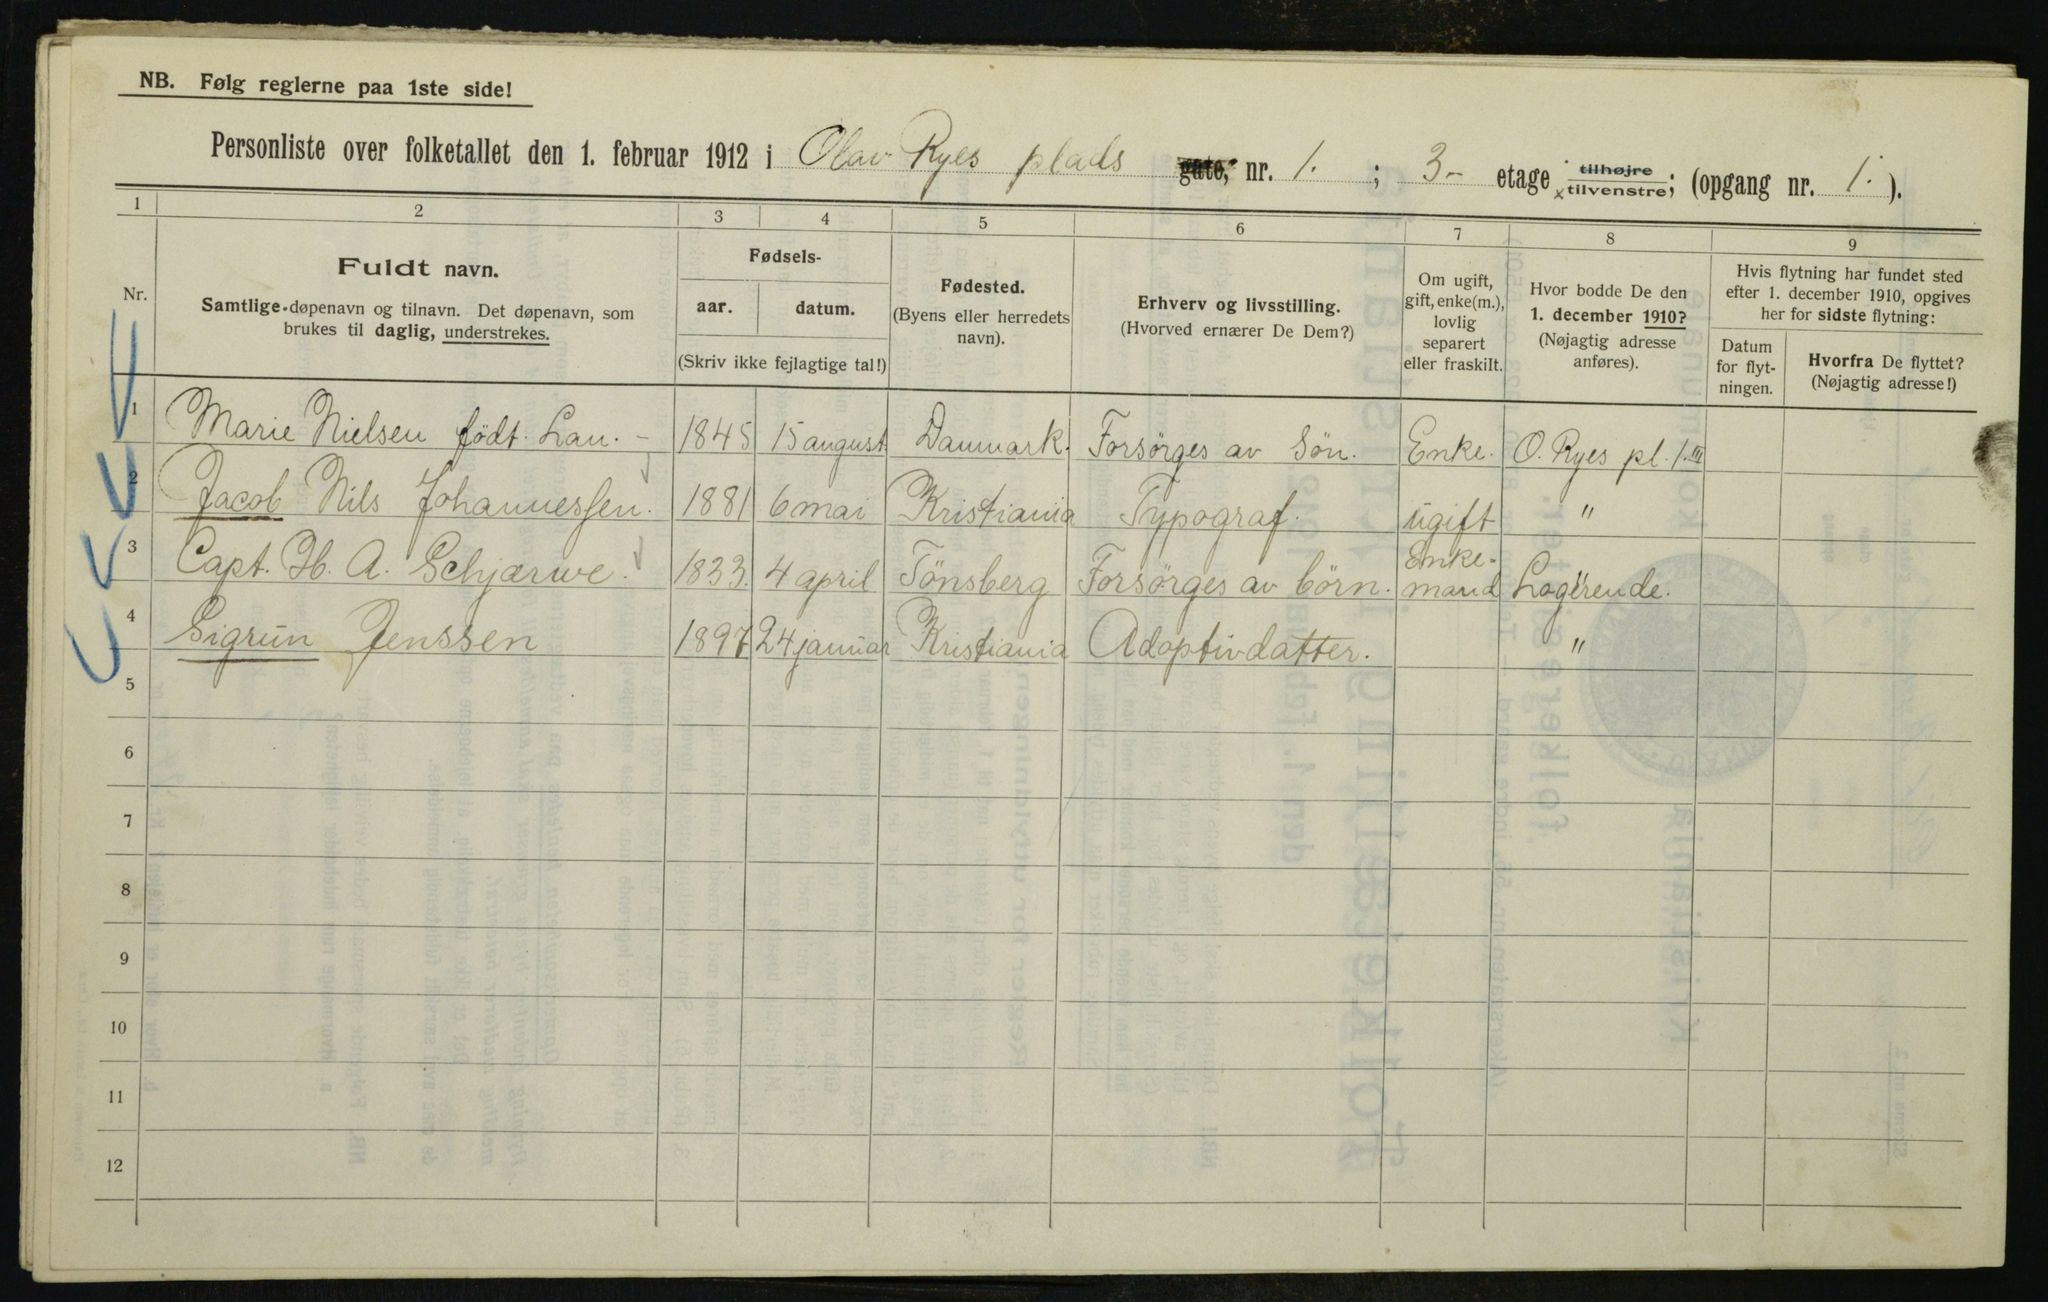 NB. Følg reglerne paa 1ste side!
Personliste over folketallet den 1. februar 1912 i Olav Ryes plads gate, nr. 1. ; 3- etage tilhøjre tilvenstre; (opgang nr. 1. ).
1 2 3 4 5 6 7 8 9
Nr.
Fuldt navn.
Samtlige døpenavn og tilnavn. Det døpenavn, som
brukes til daglig, understrekes.
Fødsels-
aar. datum.
(Skriv ikke fejlagtige tal!)
Fødested.
(Byens eller herredets
navn).
Erhverv og livsstilling.
(Hvorved ernærer De Dem?)
Om ugift,
gift, enke(m.),
lovlig
separert
eller fraskilt.
Hvor bodde De den
1. december 1910?
(Nøjagtig adresse
anføres).
Hvis flytning har fundet sted
efter 1. december 1910, opgives
her for sidste flytning:
Datum
for flyt-
ningen.
Hvorfra De flyttet?
(Nøjagtig adresse!)
1 Marie Nielsen født. Lau. - 1845 15 august Danmark. Forsørges av Søn. Enke. O. Ryes pl. 1. III
2 Jacob Nils Johannessen. 1881 6 mai Kristiania Typograf. ugift "
3 Capt. H. A. Schjærwe. 1833. 4 april Tönsberg Forsørges av börn. Enke-
mand Logerende.
4 Sigrun Jenssen 1897 24 januar Kristiania Adoptivdatter. "
5
6
7
8
9
10
11
12